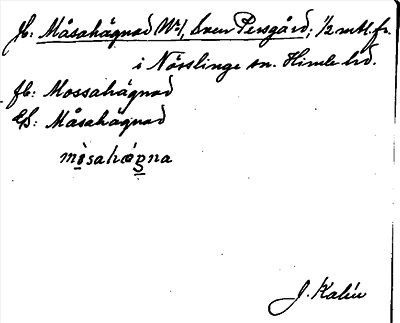 f.: Måsahägnad (Wa), även Persgård, 1/2 mtl. fr.
i Nösslinge sn. Himle hd.
fb: Mossahägnad
Eb: Måsahägnad
mòsahá̤gna
J. Kalén